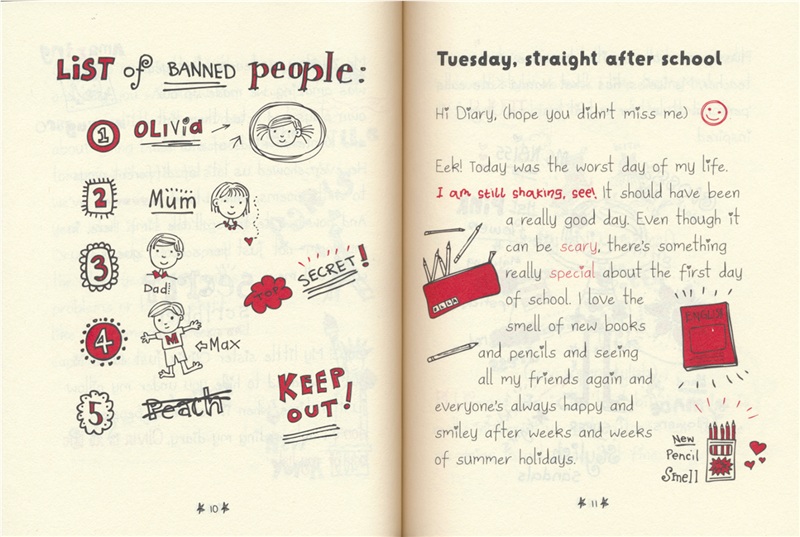 LiST of BANNED people:
1 OLiVia
2 Mum
3 Dad
TOP SECRET!
4 M Max
5 Peach
KEEP OUT!
10
Tuesday, straight after school
Hi Diary, (hope you didn't miss me)
Eek! Today was the worst day of my life.
I am still shaking, see! It should have been
a really good day. Even though it
can be scary, there's something
really special about the first day
of school. I love the
smell of new books
and pencils and seeing
all my friends again and
everyone's always happy and
smiley after weeks and weeks
of summer holidays.
ENGLISH
New
Pencil
Smell
11